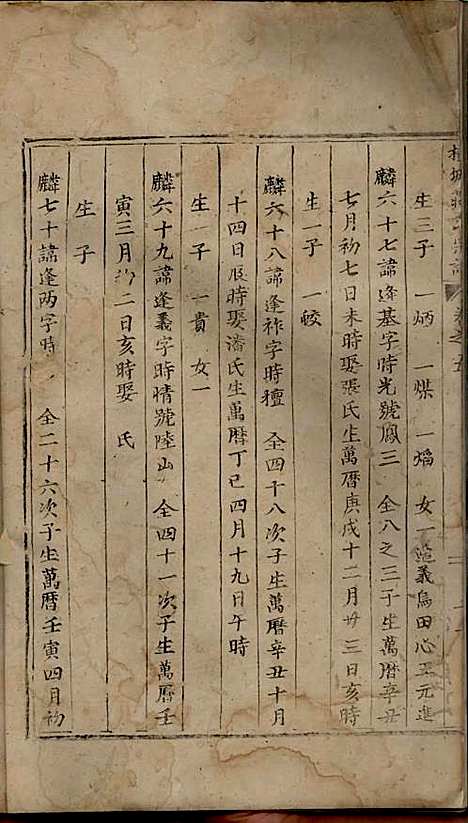 城 宗譜 卷之五
生三子 一炳 一煤 一熖 女一適義烏田心王元進
麟六十七諱逢基字時光號鳳三 仝八之三子生萬曆辛丑
七月初七日未時娶張氏生萬曆庚戌十二月廿三日亥時
生一子 一皎
麟六十八諱逢祚字時䄠 仝四十八次子生萬曆辛丑十月
十四日辰時娶潘氏生萬曆丁巳四月十九日午時
生一子 一貴 女一
麟六十九諱逢義字時情號陸山 仝四十一次子生萬曆壬
寅三月初二日亥時娶 氏
生 子
麟七十諱逢兩字時 仝二十六次子生萬曆壬寅四月初